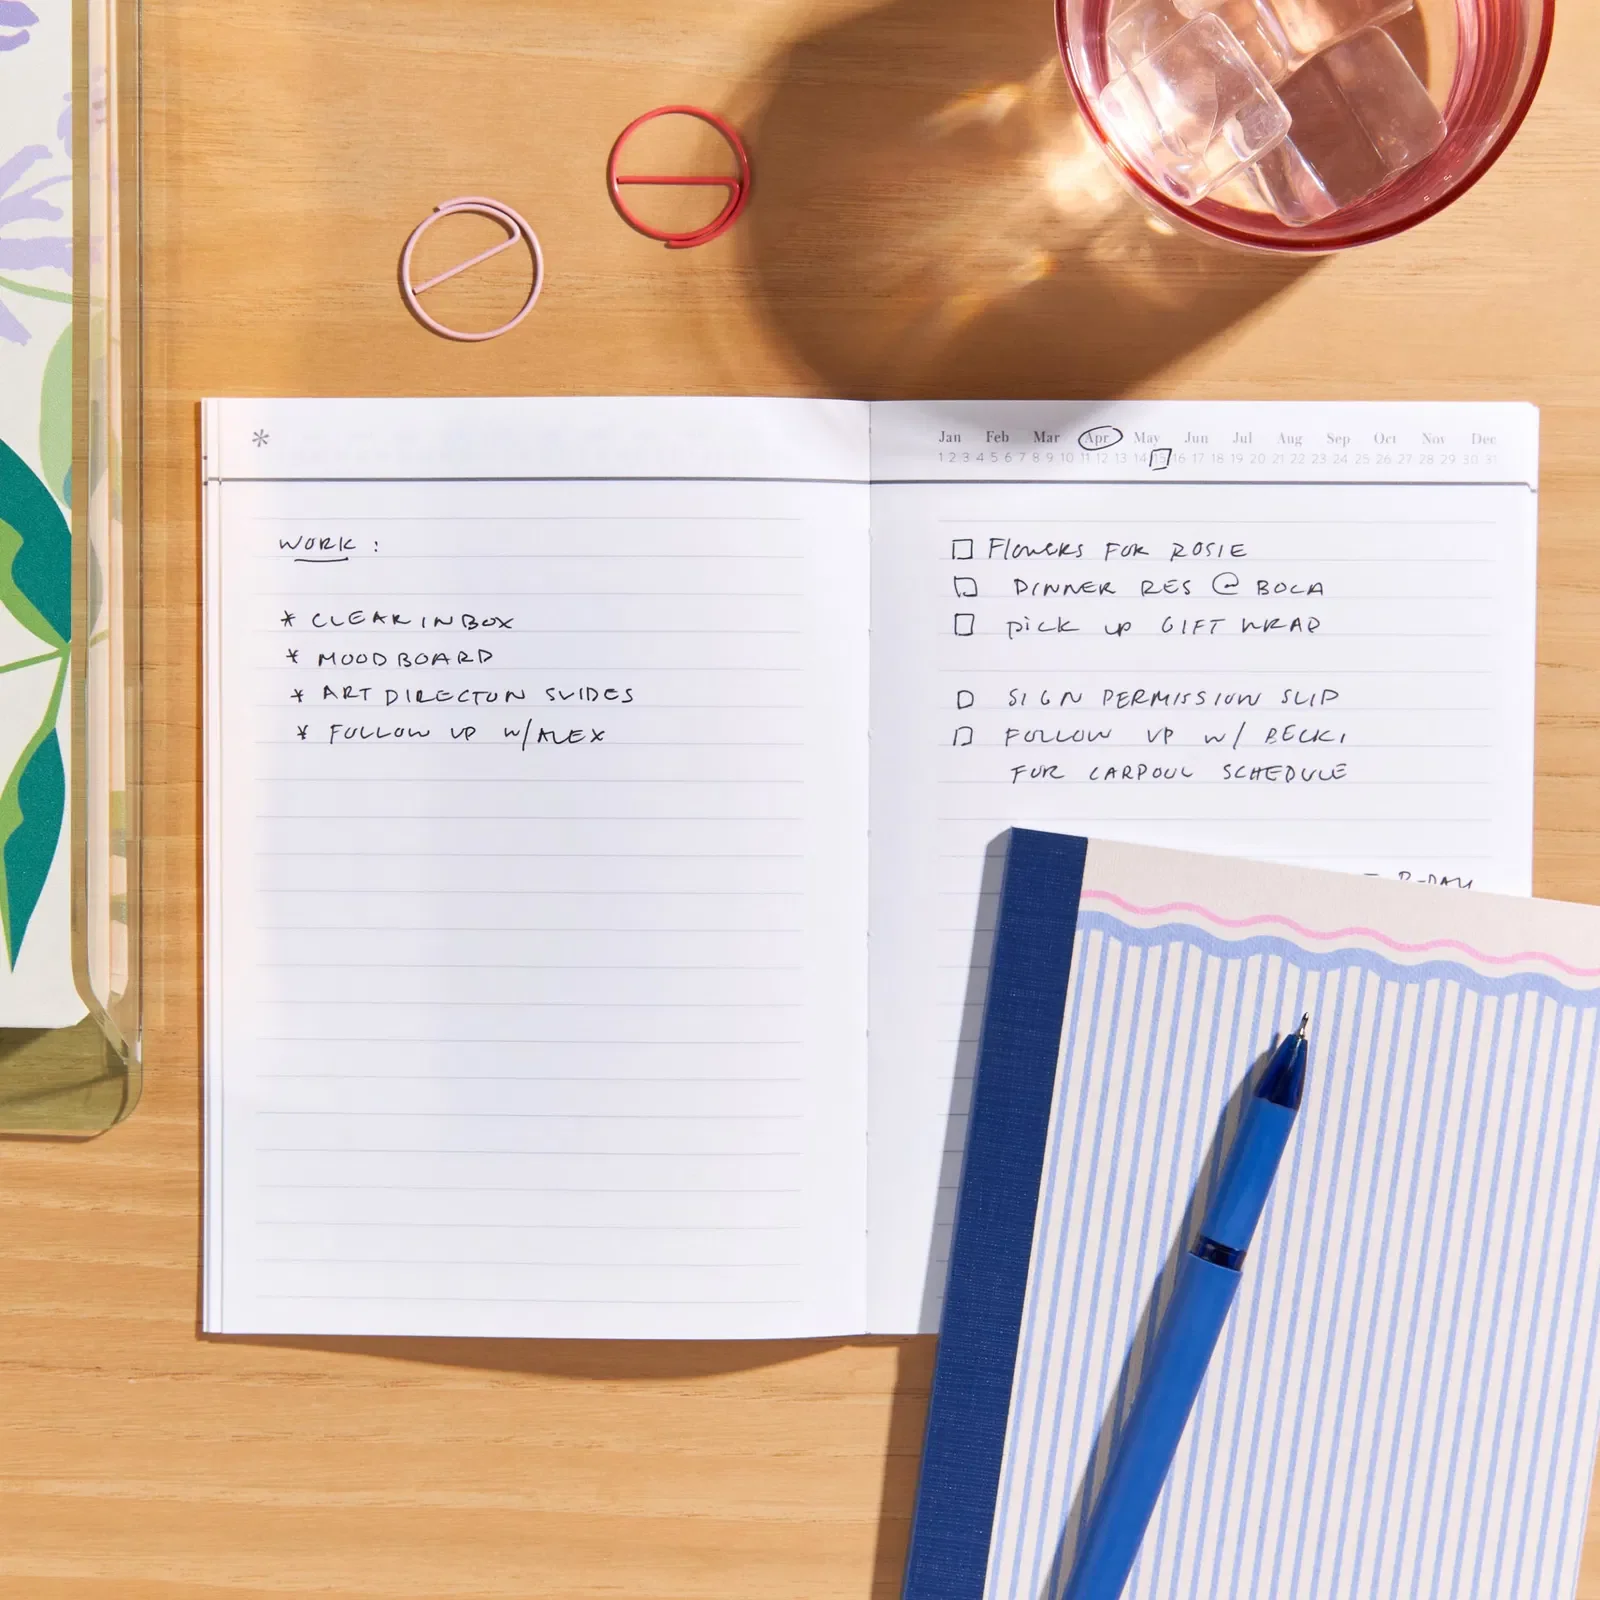 *
WORK :
* CLEAR INBOX
* MOOD BOARD
* ART DIRECTON SLIDES
* FOLLOW UP W/ALEX
Jan Feb Mar Apr May Jun Jul Aug Sep Oct Nov Dec
1 2 3 4 5 6 7 8 9 10 11 12 13 14 15 16 17 18 19 20 21 22 23 24 25 26 27 28 29 30 31
Flowers FOR ROSIE
DINNER RES @ BOCA
PiCK UP GIFT WRAP
SIGN PERMISSION SLIP
FOLLOW UP W/ BECKI
FOR CARPOOL SCHEDULE
B-DAY